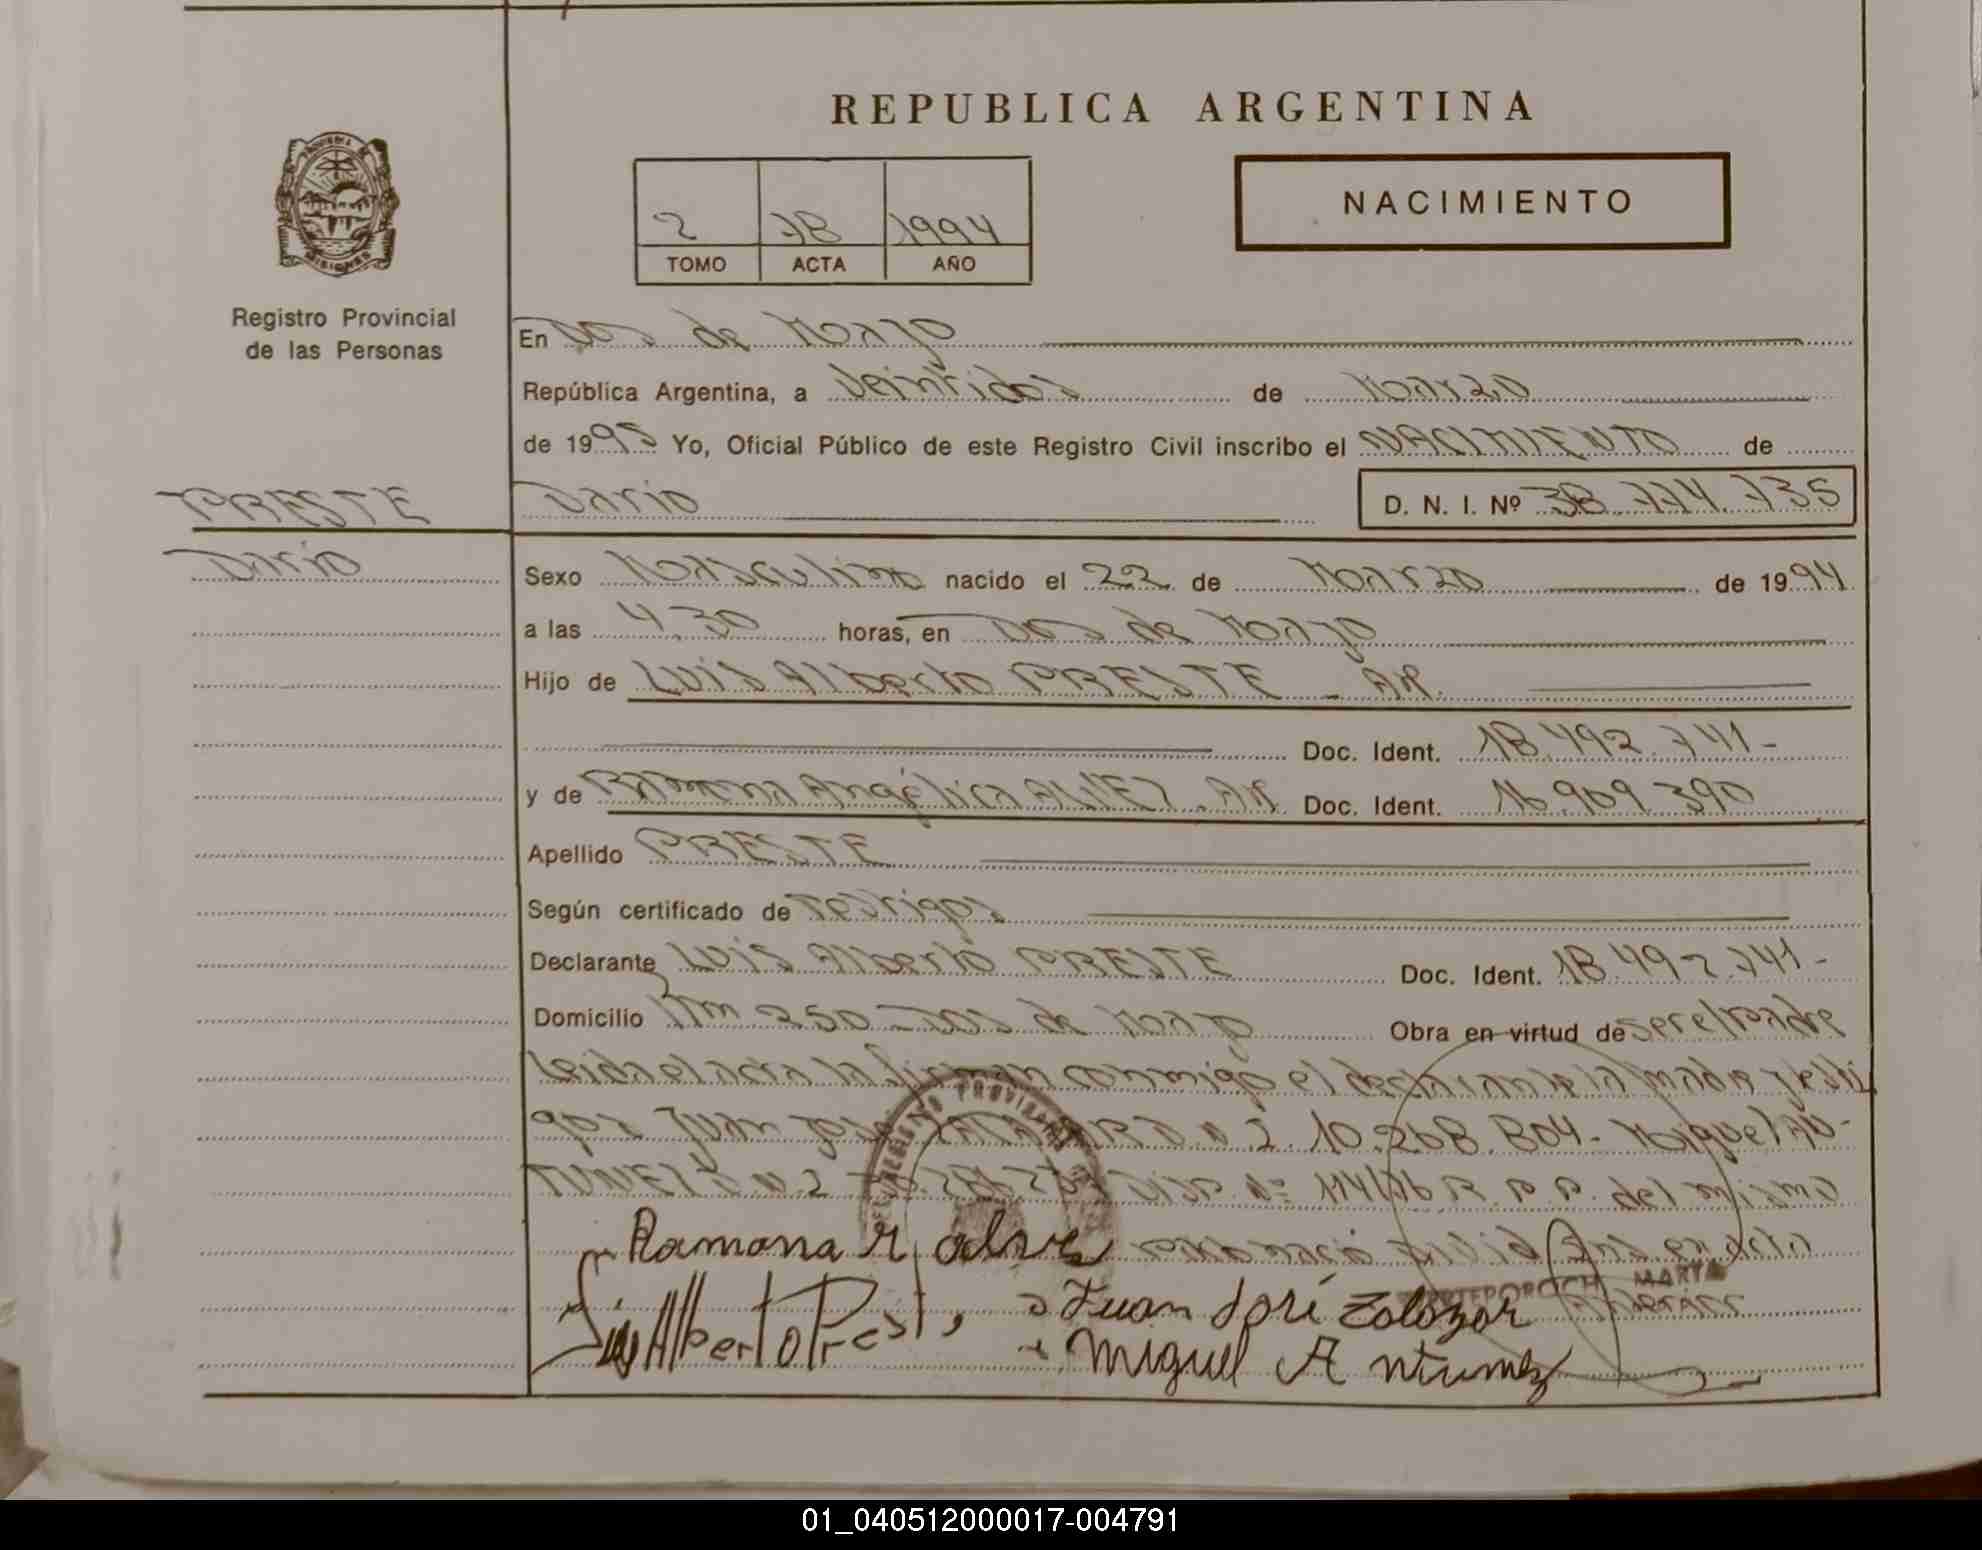 REPUBLICA ARGENTINA
NACIMIENTO
2 78 1994
TOMO ACTA AÑO
PROVINCIA DE
MISIONES
Registro Provincial
de las Personas
En Dos de Mayo
República Argentina, a Veintidos de Marzo
de 1995 Yo, Oficial Público de este Registro Civil inscribo el NACIMIENTO de
PRESTE
Dario D. N. I. Nº 38.774.735
Dario
Sexo Masculino nacido el 22 de Marzo de 1994
a las 4,30 horas, en Dos de Mayo
Hijo de Luis Alberto PRESTE - AR.
Doc. Ident. 18.492.741-
y de Ramona Angélica ALVEZ. AR. Doc. Ident. 16.909.390
Apellido PRESTE
Según certificado de Testigos
Declarante Luis Alberto PRESTE Doc. Ident. 18.492.741-
Domicilio Km 250 - Dos de Mayo Obra en virtud de ser el padre
Leida el acta la firman conmigo el declarante la madre y testi
gos Juan José 10.268.804- Miguel AN-
TUNEZ Disp. Nº 114/76 R.P.P. del mismo
Ramona A alves
Luis Alberto Prest, Juan José Zalozar
MARTA
Miguel Antunez
01_040512000017-004791